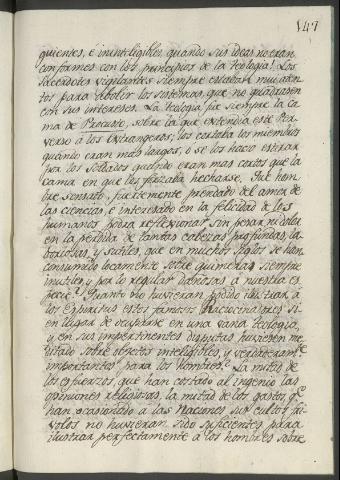 147
quientes, e ininteligibles quando sus ideas no eran
conformes con los principios de la teologia! Los
Sacerdotes vigilantes siempre estaban mui aten
tos para abolir los sistemas, que no quadrasen
con sus intereses. La teologia fue siempre la ca
ma de Procusto, sobre la que extendia este Per
verso á los extrangeros; les cortaba los miembros
quando eran mas largos, ó se los hacia estirar
por los soldados quando eran mas cortos que la
cama en que los forzaba hecharse. Que hom
bre sensato, fuertemente prendado del amor de
las ciencias, e interesado en la felicidad de los
humanos podra reflexionar sin pesar ni dolor
en la perdida de tantas cabezas profundas, la
boriosas, y sutiles, que en muchos siglos se han
consumido locamente sobre quimeras siempre
inutiles, y por lo regular dañosas á nuestra es
pecie? Quanto no huvieran podido ilustrar á
los Espiritus estos famosos
en lugar de ocuparse en una vana teologia,
y en sus impertinentes disputas huviesen me
ditado sobre objetos inteligibles, y verdaderamte
importantes para los hombres? La mitad de
los esfuerzos, que han costado al ingenio las
opiniones religiosas, la mitad de los gastos, qe
han ocasionado a las Naciones sus cultos fri
volos no huvieran sido suficientes para
ilustrar perfectamente á los hombres sobre